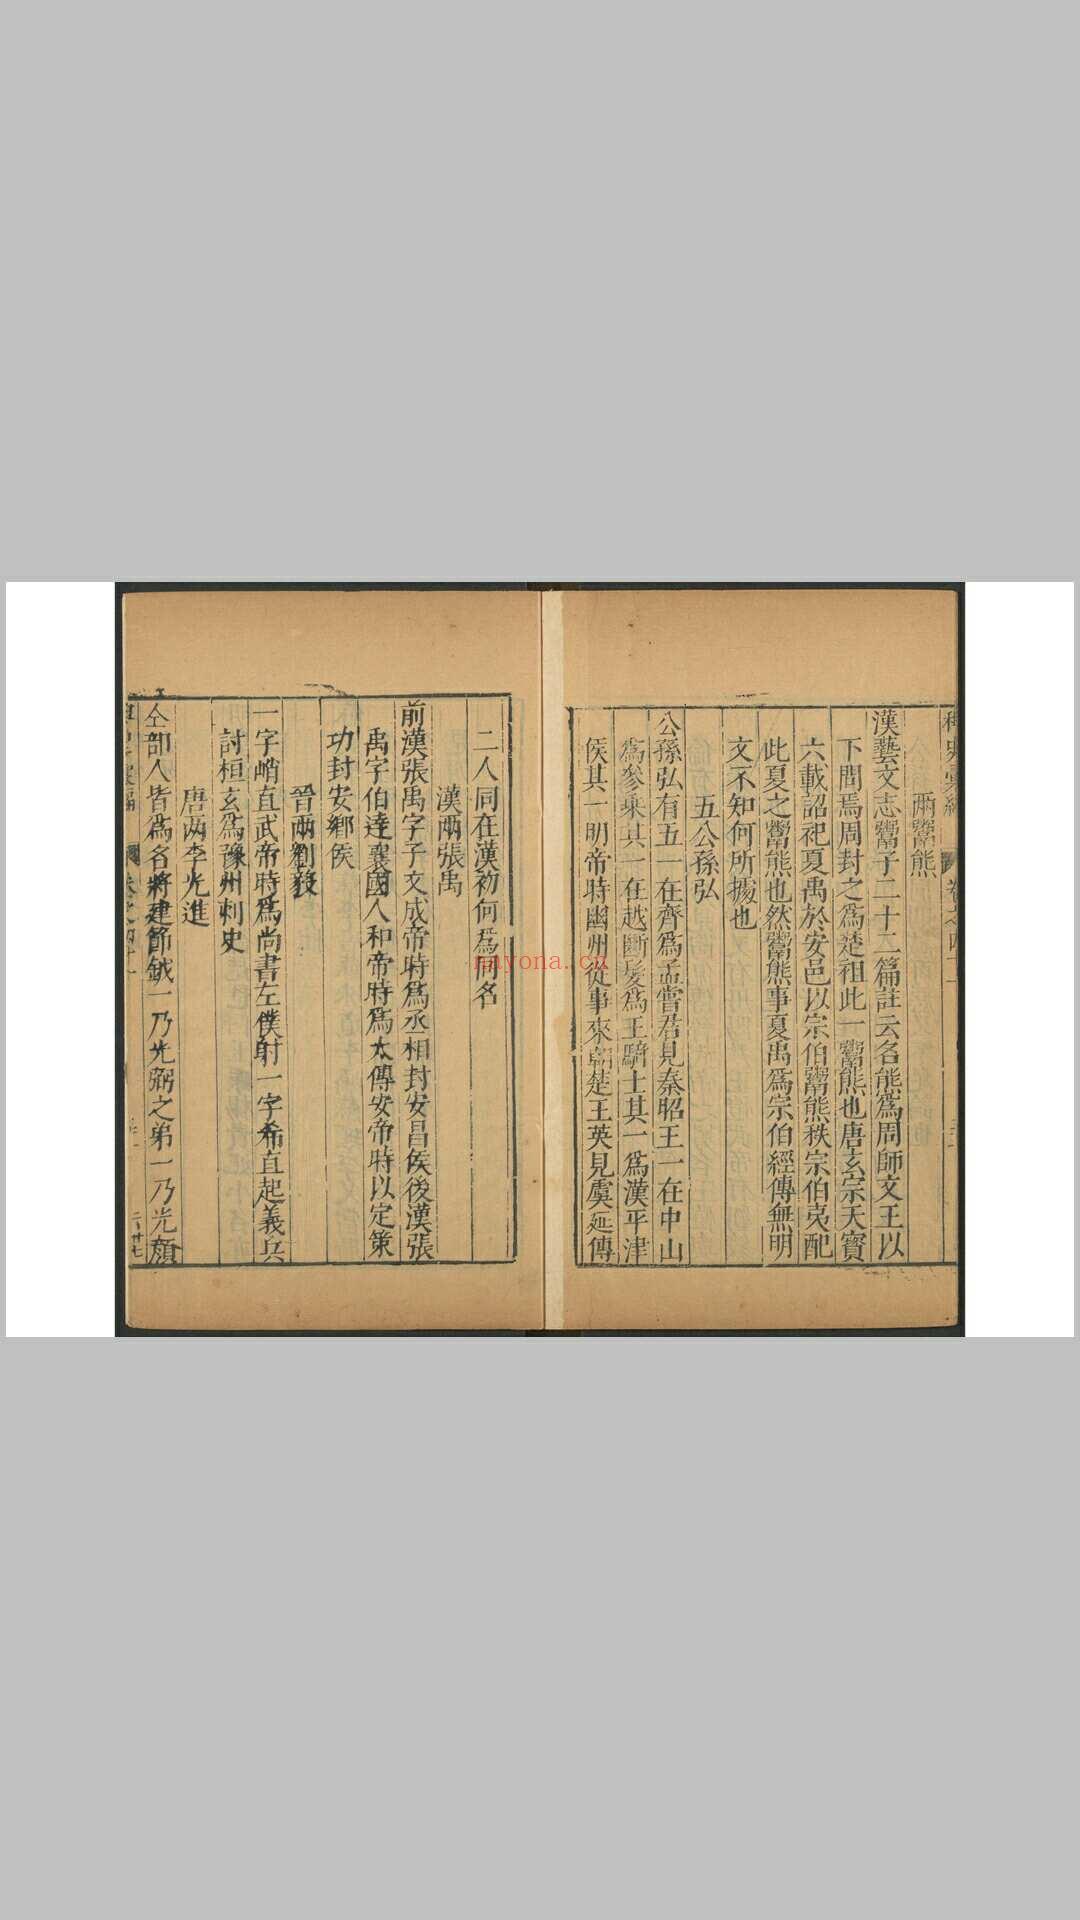 兩鬻熊
漢藝文志鬻子二十二篇註云名熊爲周師文王以
下問焉周封之爲楚祖此一鬻熊也唐玄宗天寶
六載詔祀夏禹於安邑以宗伯鬻熊秩宗伯夷配
此夏之鬻熊也然鬻熊事夏禹爲宗伯經傳無明
文不知何所據也
五公孫弘
公孫弘有五一在齊爲孟嘗君見秦昭王一在中山
爲參乘其一在越斷髮爲王騎士其一爲漢平津
侯其一明帝時幽州從事來朝楚王英見虞延傳
二人同在漢初何爲同名
漢兩張禹
前漢張禹字子文成帝時爲丞相封安昌侯後漢張
禹字伯達襄國人和帝時爲太傅安帝時以定策
功封安鄉侯
晉兩劉毅
一字峭直武帝時爲尚書左僕射一字希直起義兵
討桓玄爲豫州刺史
唐两李光進
仝部人皆爲名將建節鉞一乃光弼之弟一乃光顏
nayona.cn